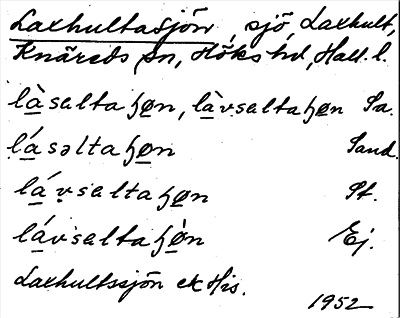 Laxhultasjön, sjö, Laxhult,
Knäreds sn, Höks hd, Hall. l.
làsaltaɧøn, làvsaltaɧøn Sa.
lásəltaɧøn Sand.
lávsaltaɧøn St.
lávsaltaɧøn Ej.
Laxhultssjön ek His.
1952